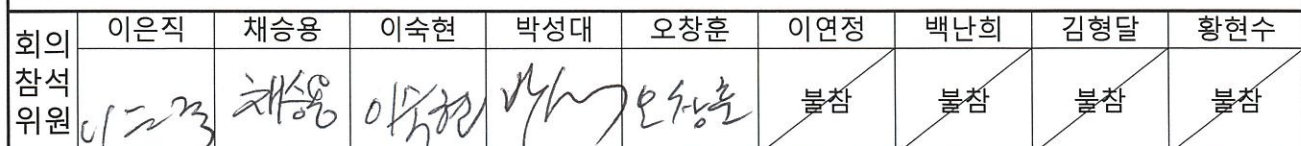 회의 참석 위원
이은직 채승용 이숙현 박성대 오창훈 이연정 백난희 김형달 황현수
이은직 채승용 이숙현 오창훈 불참 불참 불참 불참